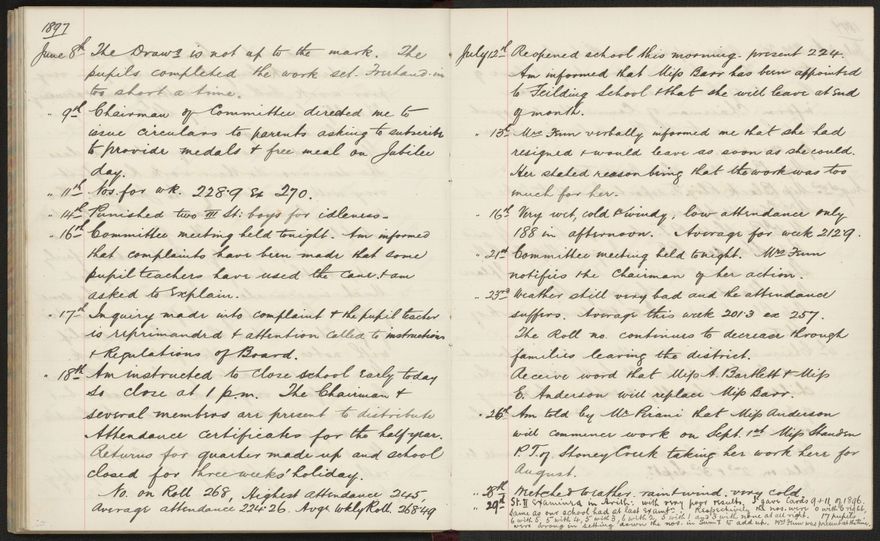 1897
June 8th The Drawg is not up to the mark. The
pupils completed the work set. Freehand in
too short a time.
" 9th Chairman of Committee directed me to
issue circulars to parents asking to subscribe
to provide medals & free meal on Jubilee
day.
" 11th Nos. for wk. 228.9 ex 270.
" 14th Punished two III St: boys for idleness.
" 16th Committee meeting held tonight. Am informed
that complaints have been made that some
pupil teachers have used the cane & am
asked to explain.
" 17th Inquiry made into complaint & the pupil teacher
is reprimanded & attention called to instructions
& Regulations of Board.
" 18th Am instructed to close school early today
so close at 1 p.m. The Chairman &
several members are present to distribute
Attendance certificates for the half year.
Returns for quarter made up and school
closed for three weeks' holiday.
No. on Roll 268, Highest attendance 245,
Average attendance 224.26. Avge wkly Roll 268.49
July 12th Reopened school this morning. present 224.
Am informed that Miss Barr has been appointed
to Feilding School & that she will leave at end
of month.
" 13th Mrs Funn verbally informed me that she had
resigned & would leave as soon as she could.
Her stated reason being that the work was too
much for her.
" 16th Very wet, cold & windy, low attendance only
188 in afternoon. Average for week 212.9.
" 21st Committee meeting held tonight. Mrs Funn
notifies the Chairman of her action.
" 23rd Weather still very bad and the attendance
suffers. Average this week 201.3 ex 257.
The Roll no. continues to decrease through
families leaving the district.
Receive word that Miss A. Bartlett & Miss
E. Anderson will replace Miss Barr.
" 26th Am told by Mr Pirani that Miss Anderson
will commence work on Sept. 1st Miss
P.T. of Stoney Creek taking her work here for
August.
" 28th Wretched weather, rain & wind. very cold
" 29th St. II Examined in Arith: with very poor results. I gave Cards 9 & 11 of 1896.
Same as our school had at last examtn. Respectively the nos. were 0 with 6 right,
6 with 5, 5 with 4, 5 with 3, 6 with 2, 5 with 1 and 3 with none at all right. 17 pupils
were wrong in setting down the nos. in Sum 1 to add up. Mrs Funn was present at the time.